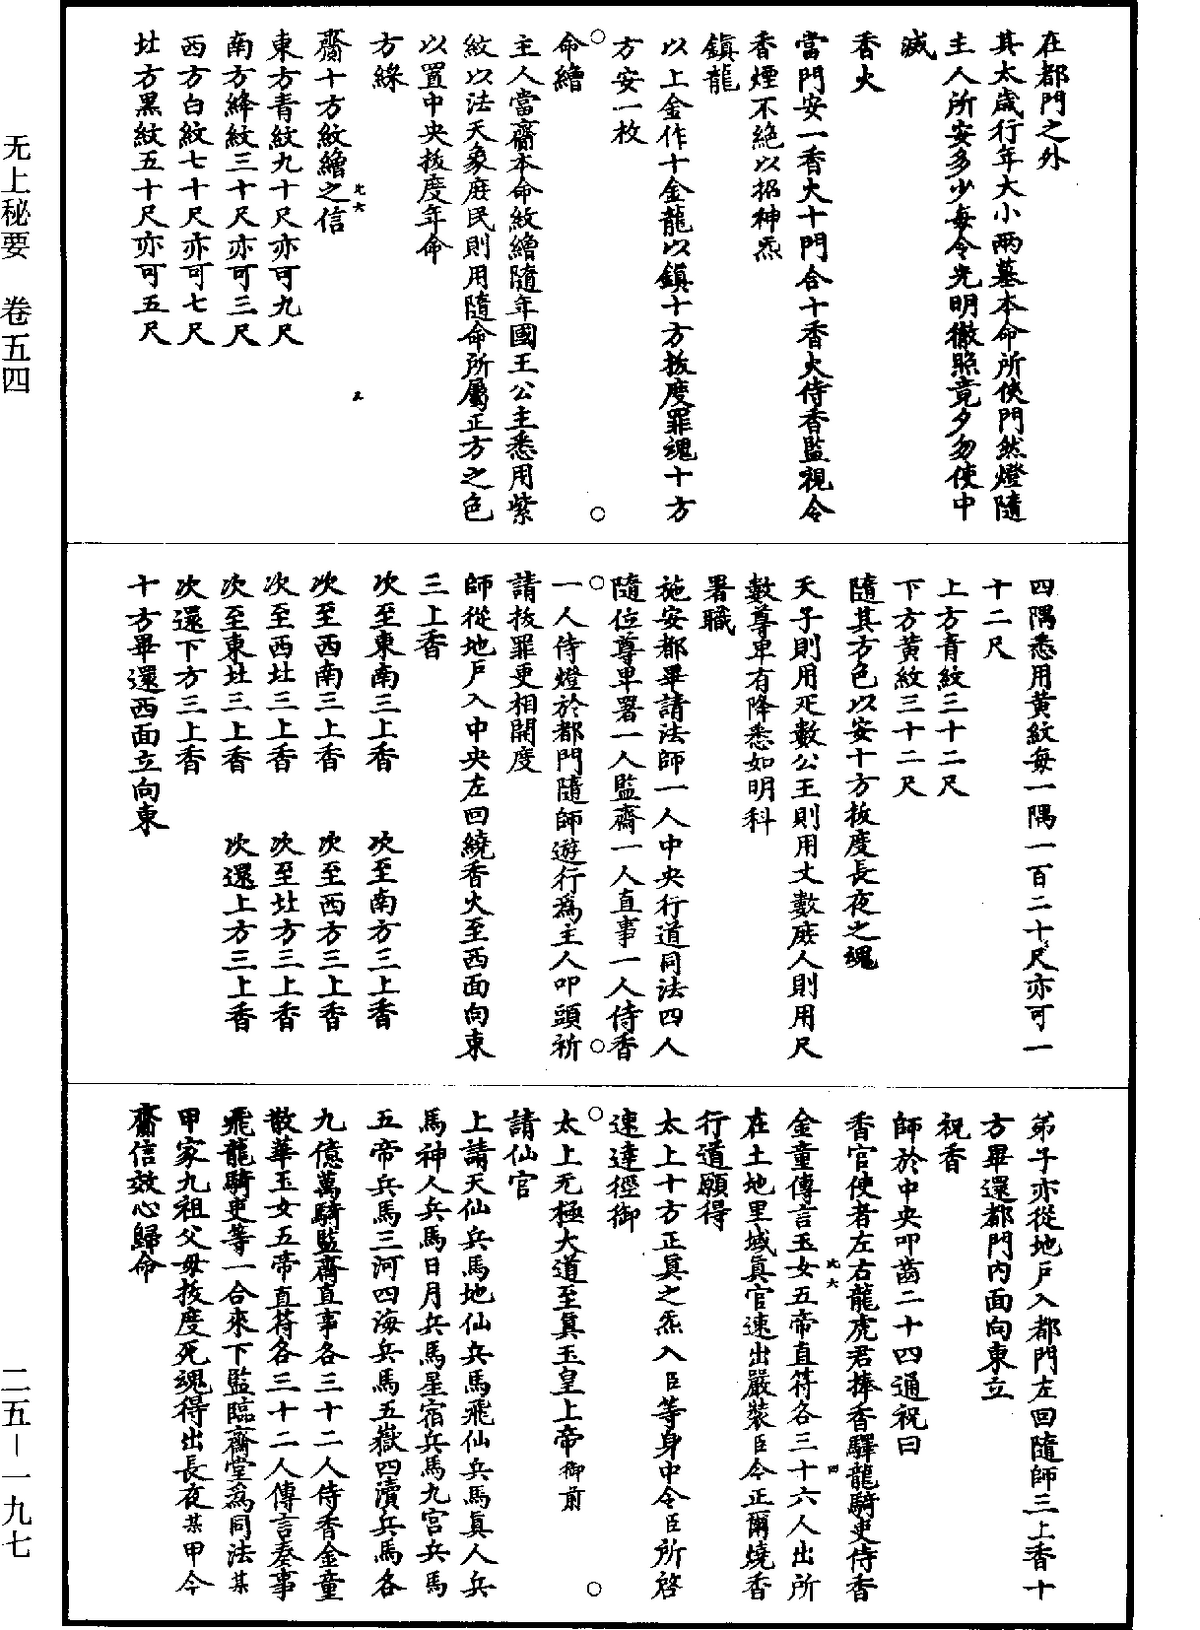 无上秘要　卷五四
二五－一九七
在都門之外
其太歲行年大小兩墓本命所使門然燈隨
主人所安多少每令光明徹照竟夕勿使中
滅
香火
當門安一香火十門合十香火侍香監視令
香煙不絕以招神炁
鎮龍
以上金作十金龍以鎮十方拔度罪魂十方
方安一枚
命繒
主人當齎本命紋繒隨年國王公主悉用紫
紋以法天象庶民則用隨命所屬正方之色
以置中央拔度年命
方綵
齎十方紋繒之信
東方青紋九十尺亦可九尺
南方絳紋三十尺亦可三尺
西方白紋七十尺亦可七尺
北方黑紋五十尺亦可五尺
四隅悉用黃紋每一隅一百二十尺亦可一
十二尺
上方青紋三十二尺
下方黃紋三十二尺
隨其方色以安十方拔度長夜之魂
天子則用疋數公王則用丈數庶人則用尺
數尊卑有降悉如明科
署職
施安都畢請法師一人中央行道同法四人
隨位尊卑署一人監齋一人直事一人侍香
一人侍燈於都門隨師遊行為主人叩頭祈
請拔罪更相開度
師從地戶入中央左回繞香火至西面向東
三上香
次至東南三上香　次至南方三上香
次至西南三上香　次至西方三上香
次至西北三上香　次至北方三上香
次至東北三上香　次還上方三上香
次還下方三上香
十方畢還西面立向東
弟子亦從地戶入都門左回隨師三上香十
方畢還都門內面向東立
祝香
師於中央叩齒二十四通祝曰
香官使者左右龍虎君捧香驛龍騎吏侍香
金童傳言玉女五帝直符各三十六人出所
在土地里域真官速出嚴裝臣今正爾燒香
行道願得
太上十方正真之炁入臣等身中令臣所啓
速達徑御
太上无極大道至真玉皇上帝御前
請仙官
上請天仙兵馬地仙兵馬飛仙兵馬真人兵
馬神人兵馬日月兵馬星宿兵馬九宮兵馬
五帝兵馬三河四海兵馬五嶽四瀆兵馬各
九億萬騎監齋直事各三十二人侍香金童
散華玉女五帝直符各三十二人傳言奏事
飛龍騎吏等一合來下監臨齋堂為同法某
甲家九祖父母拔度死魂得出長夜某甲今
齎信效心歸命